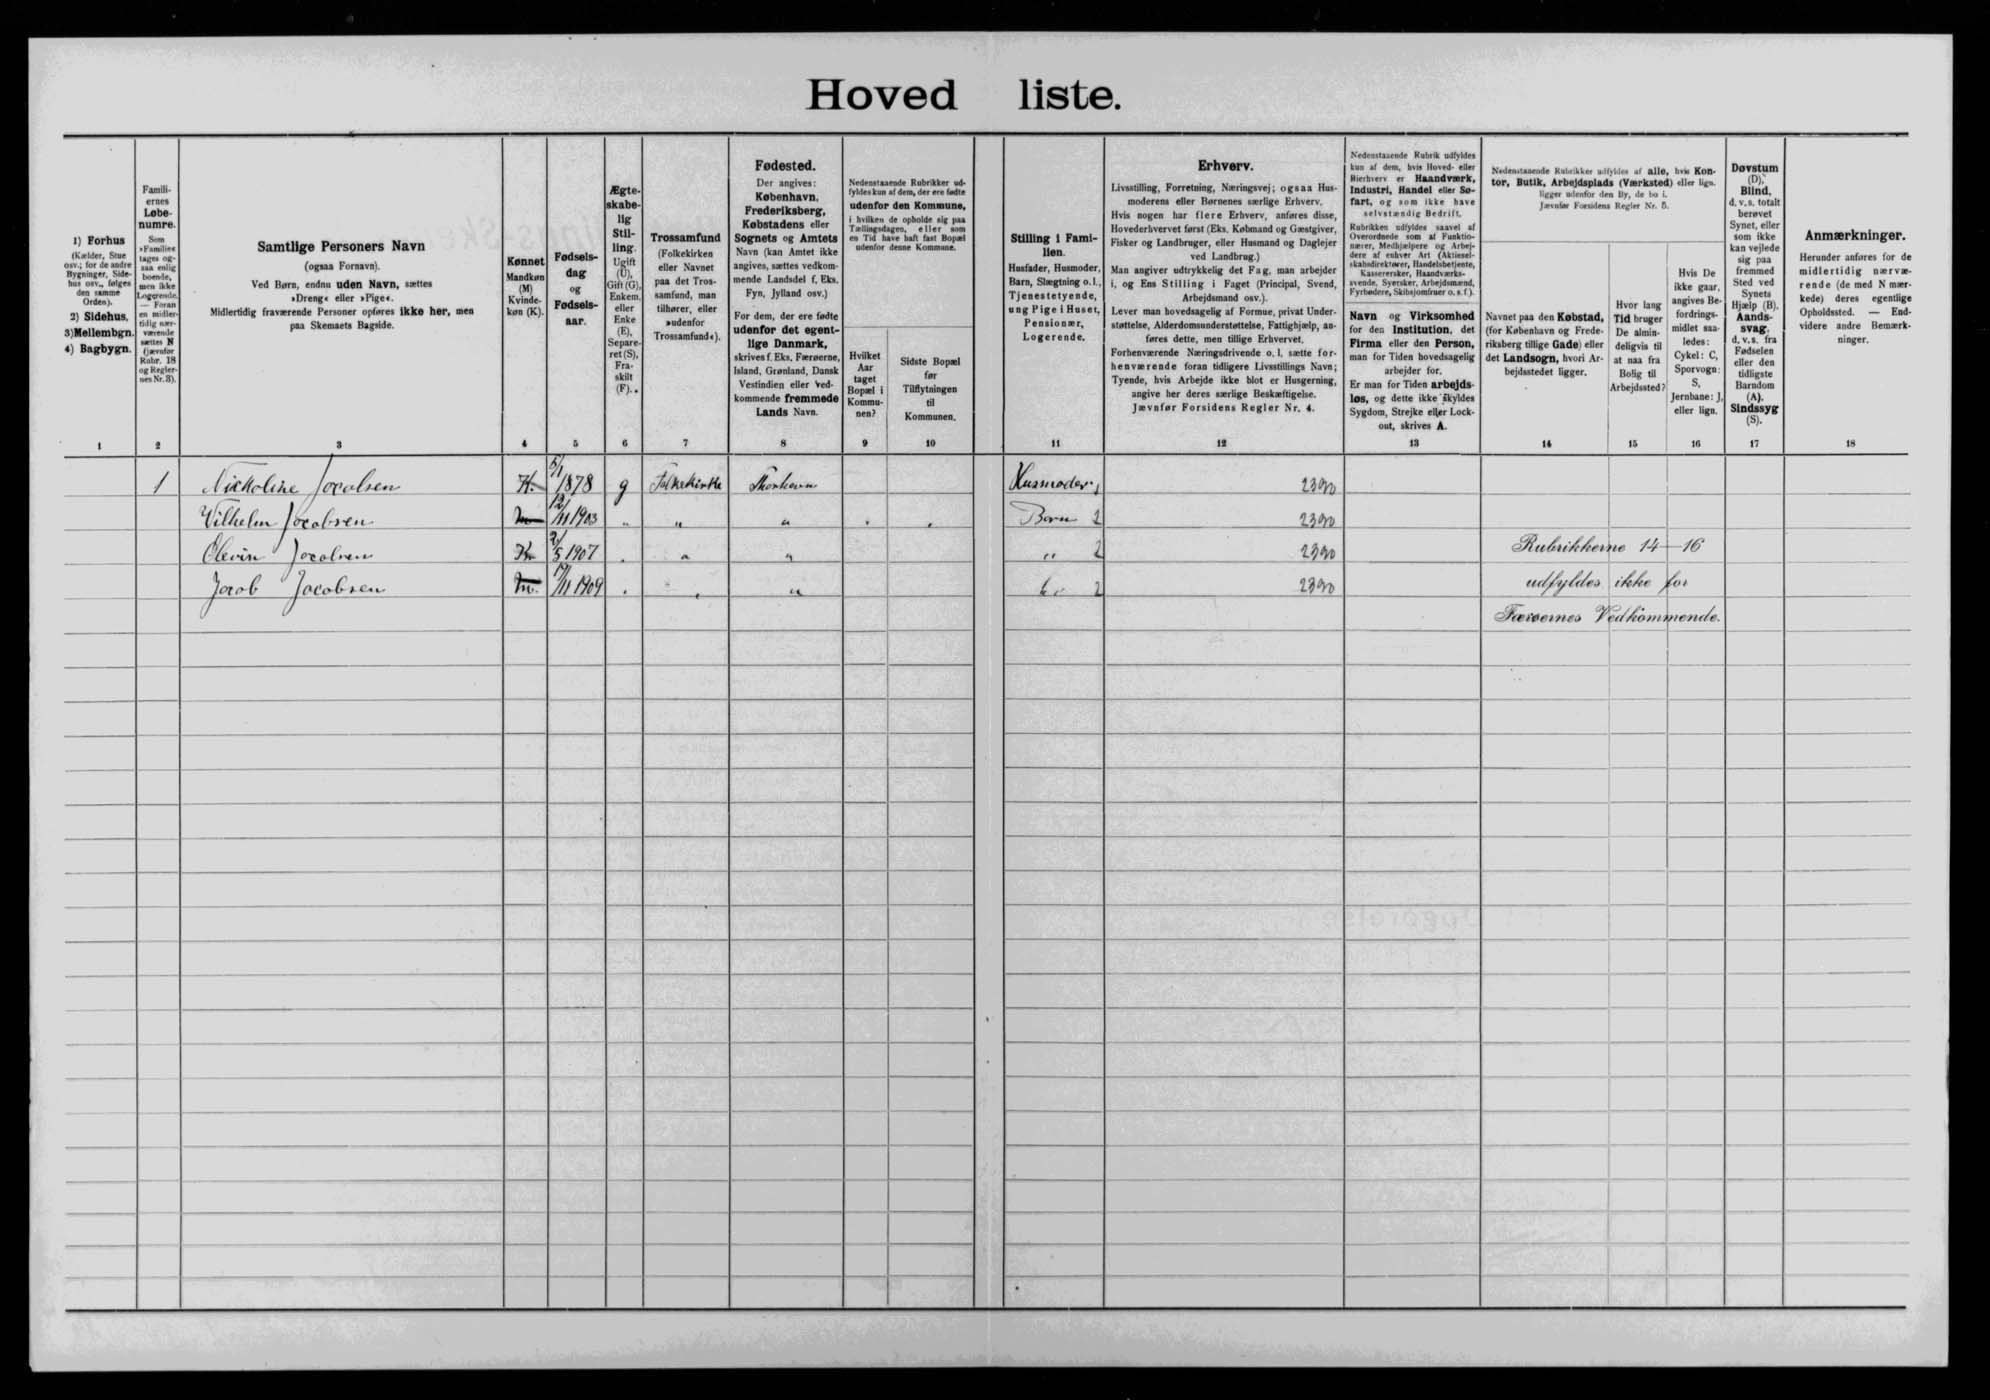 Hoved liste.
1) Forhus
(Kælder, Stue
osv.; for de andre
Bygninger, Side-
hus osv., følges
den samme
Orden).
2) Sidehus,
3) Mellembgn.
4) Bagbygn.
1
Famili-
ernes
Løbe-
numre.
Som
»Familie«
tages og-
saa enlig
boende,
men ikke
Logerende.
— Foran
en midler-
tidig nær-
værende
sættes N
(jævnfør
Rubr. 18
og Regler-
nes Nr. 3).
2
Samtlige Personers Navn
(ogsaa Fornavn).
Ved Børn, endnu uden Navn, sættes
»Dreng« eller »Pige«.
Midlertidig fraværende Personer opføres ikke her, men
paa Skemaets Bagside.
3
Kønnet
Mandkøn
(M)
Kvinde-
køn (K).
4
Fødsels-
dag
og
Fødsels-
aar.
5
Ægte-
skabe-
lig
Stil-
ling.
Ugift
(U),
Gift (G),
Enkem.
eller
Enke
(E),
Separe-
ret (S),
Fra-
skilt
(F).
6
Trossamfund
(Folkekirken
eller Navnet
paa det Tros-
samfund, man
tilhører, eller
»udenfor
Trossamfund«).
7
Fødested.
Der angives:
København,
Frederiksberg,
Købstadens eller
Sognets og Amtets
Navn (kan Amtet ikke
angives, sættes vedkom-
mende Landsdel f. Eks.
Fyn, Jylland osv.)
For dem, der ere fødte
udenfor det egent-
lige Danmark,
skrives f. Eks. Færøerne,
Island, Grønland, Dansk
Vestindien eller ved-
kommende fremmede
Lands Navn.
8
Nedenstaaende Rubrikker ud-
fyldes kun af dem, der ere fødte
udenfor den Kommune,
i hvilken de opholde sig paa
Tællingsdagen, eller som
en Tid have haft fast Bopæl
udenfor denne Kommune.
Hvilket
Aar
taget
Bopæl i
Kommu-
nen?
9
Sidste Bopæl
før
Tilflytningen
til
Kommunen.
10
Stilling i Fami-
lien.
Husfader, Husmoder,
Barn, Slægtning o. l.,
Tjenestetyende,
ung Pige i Huset,
Pensionær,
Logerende.
11
Erhverv.
Livsstilling, Forretning, Næringsvej; ogsaa Hus-
moderens eller Børnenes særlige Erhverv.
Hvis nogen har flere Erhverv, anføres disse,
Hovederhvervet først (Eks. Købmand og Gæstgiver,
Fisker og Landbruger, eller Husmand og Daglejer
ved Landbrug.)
Man angiver udtrykkelig det Fag, man arbejder
i, og Ens Stilling i Faget (Principal, Svend,
Arbejdsmand osv.).
Lever man hovedsagelig af Formue, privat Under-
støttelse, Alderdomsunderstøttelse, Fattighjælp, an-
føres dette, men tillige Erhvervet.
Forhenværende Næringsdrivende o. l. sætte for-
henværende foran tidligere Livsstillings Navn;
Tyende, hvis Arbejde ikke blot er Husgerning,
angive her deres særlige Beskæftigelse.
Jævnfør Forsidens Regler Nr. 4.
12
Nedenstaaende Rubrik udfyldes
kun af dem, hvis Hoved- eller
Bierhverv er Haandværk,
Industri, Handel eller Sø-
fart, og som ikke have
selvstændig Bedrift.
Rubrikken udfyldes saavel af
Overordnede som af Funktio-
nærer, Medhjælpere og Arbej-
dere af enhver Art (Aktiesel-
skabsdirektører, Handelsbetjente,
Kasserersker, Haandværks-
svende, Syersker, Arbejdsmænd,
Fyrbødere, Skibsjomfruer o. s. f.).
Navn og Virksomhed
for den Institution, det
Firma eller den Person,
man for Tiden hovedsagelig
arbejder for.
Er man for Tiden arbejds-
løs, og dette ikke skyldes
Sygdom, Strejke eller Lock-
out, skrives A.
13
Nedenstaaende Rubrikker udfyldes af alle, hvis Kon-
tor, Butik, Arbejdsplads (Værksted) eller lign.
ligger udenfor den By, de bo i.
Jævnfør Forsidens Regler Nr. 5.
Navnet paa den Købstad,
(for København og Frede-
riksberg tillige Gade) eller
det Landsogn, hvori Ar-
bejdsstedet ligger.
14
Hvor lang
Tid bruger
De almin-
deligvis til
at naa fra
Bolig til
Arbejdssted?
15
Hvis De
ikke gaar,
angives Be-
fordrings-
midlet saa-
ledes:
Cykel: C,
Sporvogn:
S,
Jernbane: J,
eller lign.
16
Døvstum
(D),
Blind,
d. v. s. totalt
berøvet
Synet, eller
som ikke
kan vejlede
sig paa
fremmed
Sted ved
Synets
Hjælp (B).
Aands-
svag,
d. v. s. fra
Fødselen
eller den
tidligste
Barndom
(A).
Sindssyg
(S).
17
Anmærkninger.
Herunder anføres for de
midlertidig nærvæ-
rende (de med N mær-
kede) deres egentlige
Opholdssted. — End-
videre andre Bemærk-
ninger.
18
1 Nickoline Jacobsen K. 5/1 1878 g Folkekirke Thorshavn Husmoder 1 2390
Vilhelm Jacobsen M 12/11 1903 " " " Børn 2 2390
Olevin Jacobsen K 2/5 1907 " " " 2 2390 Rubrikkerne 14—16
Jacob Jacobsen M. 17/11 1909 " " " 2 2390 udfyldes ikke for
Færøernes Vedkommende.